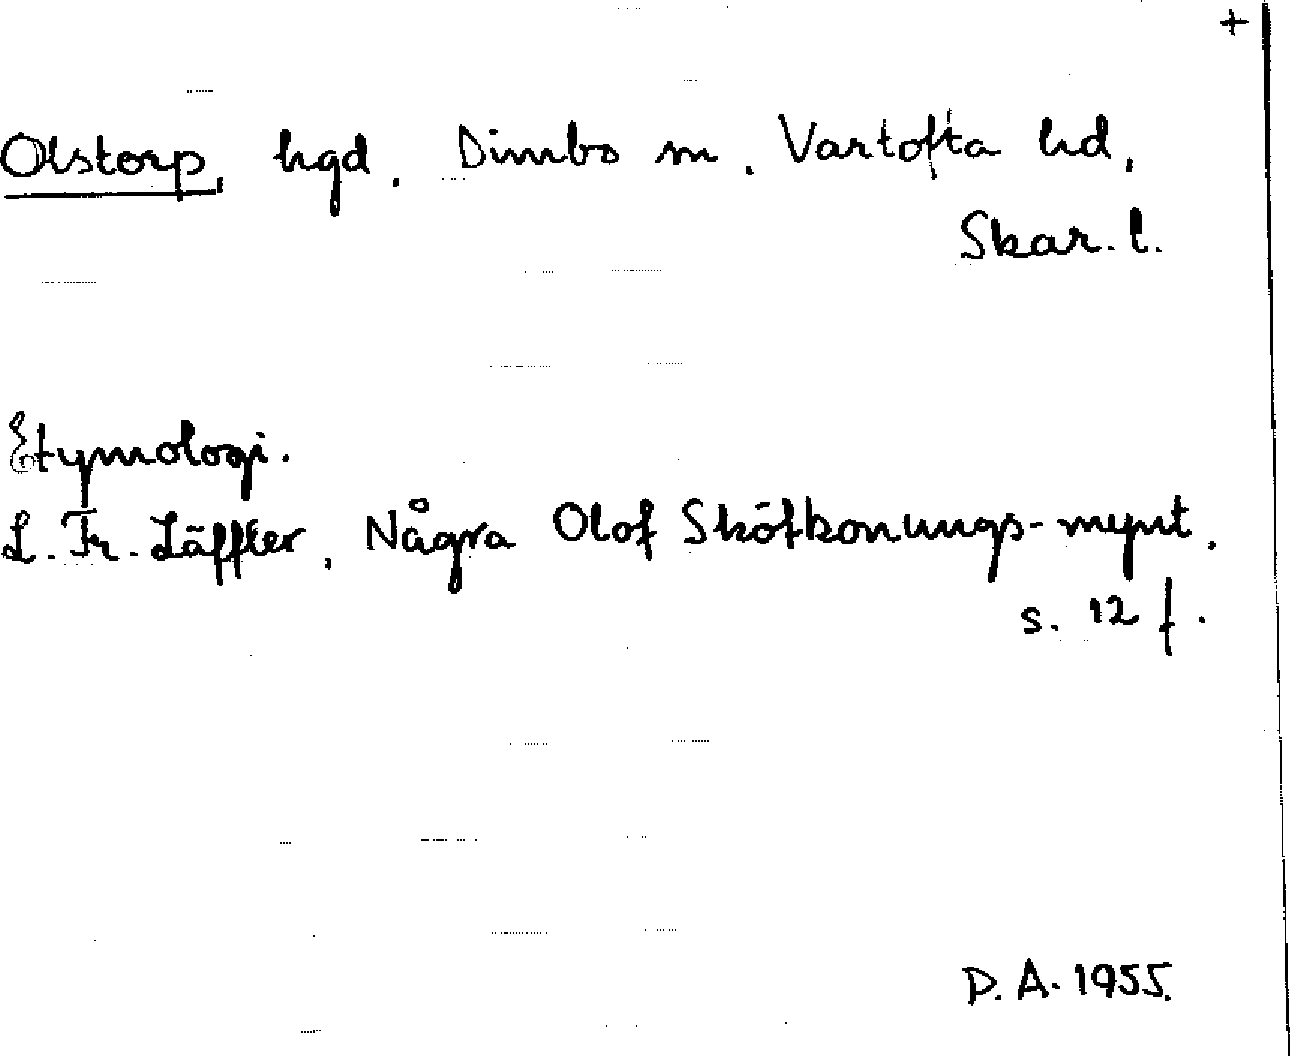 +
Olstorp, hgd. Dimbo sn. Vartofta hd,
Skar. l.
Etymologi.
L. Fr. Läffler, Några Olof Skötkonungs-mynt.
s. 12 f.
D. A. 1955.